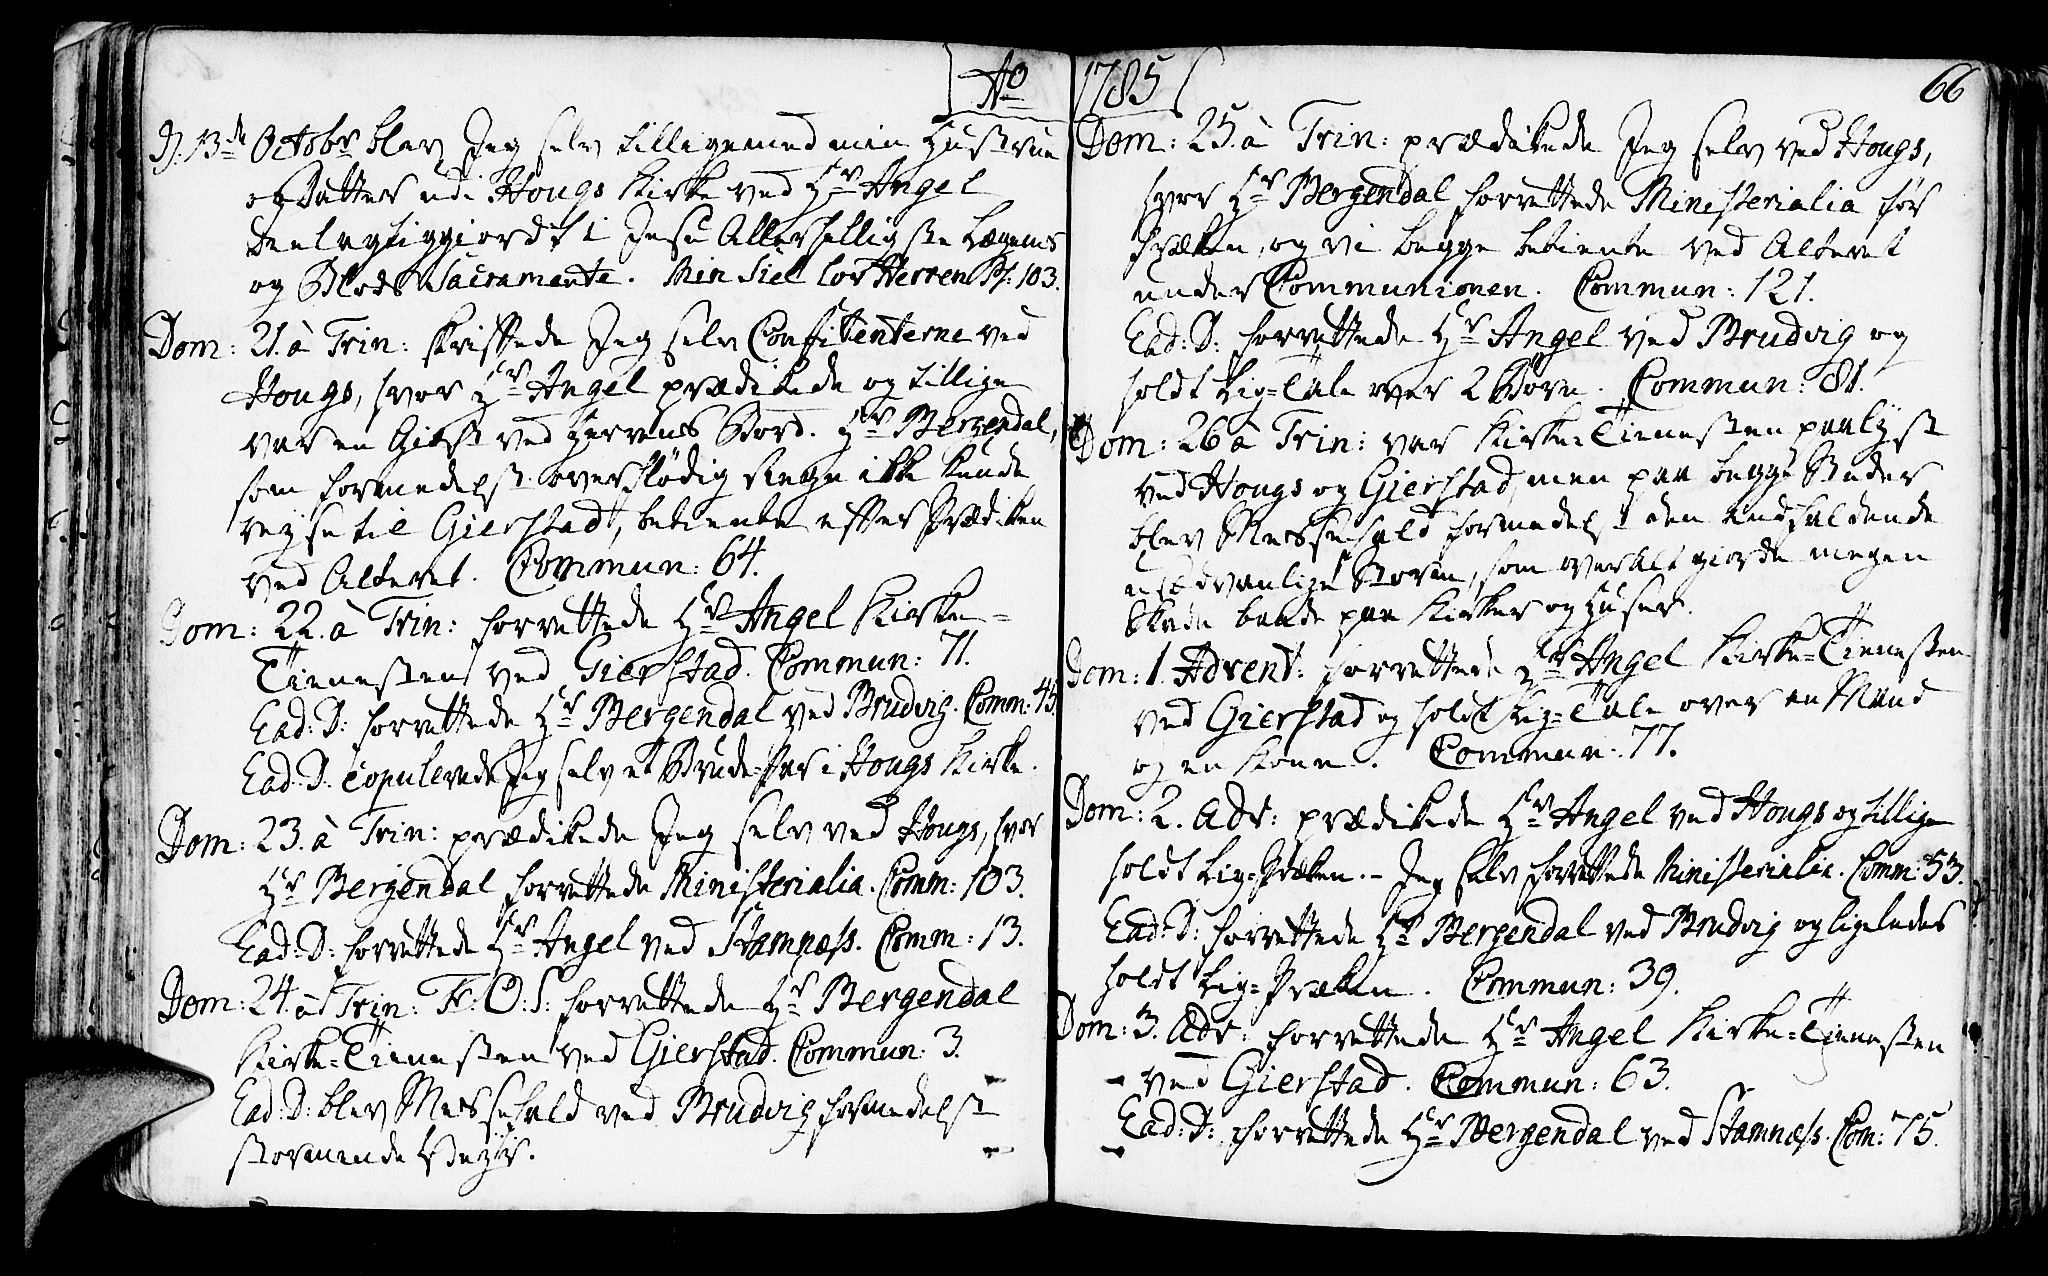 Ao 1785
66
D. 13de Octobr blev Jeg selv tilligemed min Hustrue
og Datter udi Hougs Kirke ved Hr Angel
deelagtiggiordt i Jesu Allerhelligste Legems
og Blods Sacramente. Min Siel lov Herren Ps: 103.
Dom: 21. à Trin: skriftede Jeg selv Confitenterne ved
Hougs, hvor Hr Angel prædikede og tillige
var en Giest ved Herrens Bord. Hr Bergendal,
som formedelst overflødig Regn ikke kunde
reyse til Gierstad, betiente efter Prædiken
ved Alteret. Commun: 64.
Dom: 22. à Trin: forrettede Hr Angel Kirke-
Tienesten ved Gierstad. Commun: 71.
Ead: D: forrettede Hr Bergendal ved Brudvig. Comm: 45.
Ead: D: copulerede Jeg selv et Brude-Par i Hougs Kirke.
Dom: 23. à Trin: prædikede Jeg selv ved Hougs, hvor
Hr Bergendal forrettede Ministerialia. Comm: 103.
Ead: D: forrettede Hr Angel ved Stamnæss. Comm: 13.
Dom: 24. à Trin: Fr: O: S: forrettede Hr Bergendal
Kirke-Tienesten ved Gierstad. Commun: 3.
Ead: D: blev Messefald ved Brudvig formedelst
stormende Veyr.
Dom: 25. à Trin: prædikede Jeg selv ved Hougs,
hvor Hr Bergendal forrettede Ministerialia før
Præken, og vi begge betiente ved Alteret
under Communionen. Commun: 121.
Ead: D: forrettede Hr Angel ved Brudvig og
holdt Lig-Tale over 2 Börn. Commun: 81.
Dom: 26 à Trin: var Kirke-Tienesten paalyst
ved Hougs og Gierstad, men paa begge Steder
blev Messefald formedelst den indfaldende
usædvanlige Storm, som overalt giorde megen
Skade baade paa Kirker og Huser.
Dom: 1. Advent: forrettede Hr Angel Kirke-Tienesten
ved Gierstad og holdt Lig-Tale over en Mand
og en Kone. Commun: 77.
Dom: 2. Adv: prædikede Hr Angel ved Hougs og tillige
holdt Lig-Præken. - Jeg selv forrettede Ministerialia. Comm: 53.
Ead: D: forrettede Hr Bergendal ved Brudvig og ligeledes
holdt Lig-Præken. Commun: 39.
Dom: 3. Adv: forrettede Hr Angel Kirke-Tienesten
ved Gierstad. Commun: 63.
Ead: D: forrettede Hr Bergendal ved Stamnæss. Com: 75.